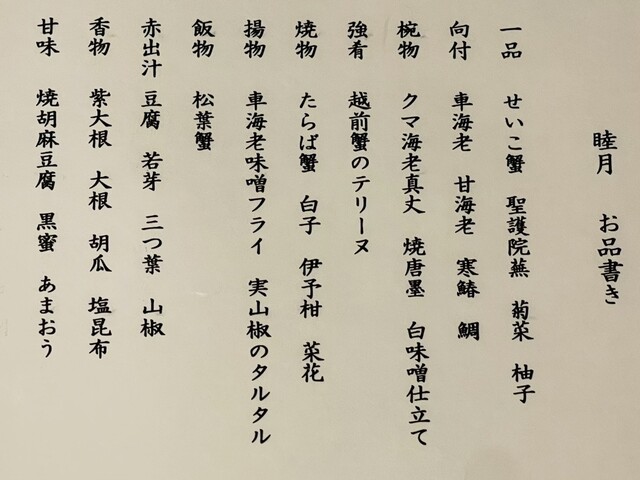 睦月　お品書き
一品　せいこ蟹　聖護院蕪　菊菜　柚子
向付　車海老　甘海老　寒鰆　鯛
椀物　クマ海老真丈　焼唐墨　白味噌仕立て
強肴　越前蟹のテリーヌ
焼物　たらば蟹　白子　伊予柑　菜花
揚物　車海老味噌フライ　実山椒のタルタル
飯物　松葉蟹
赤出汁　豆腐　若芽　三つ葉　山椒
香物　紫大根　大根　胡瓜　塩昆布
甘味　焼胡麻豆腐　黒蜜　あまおう